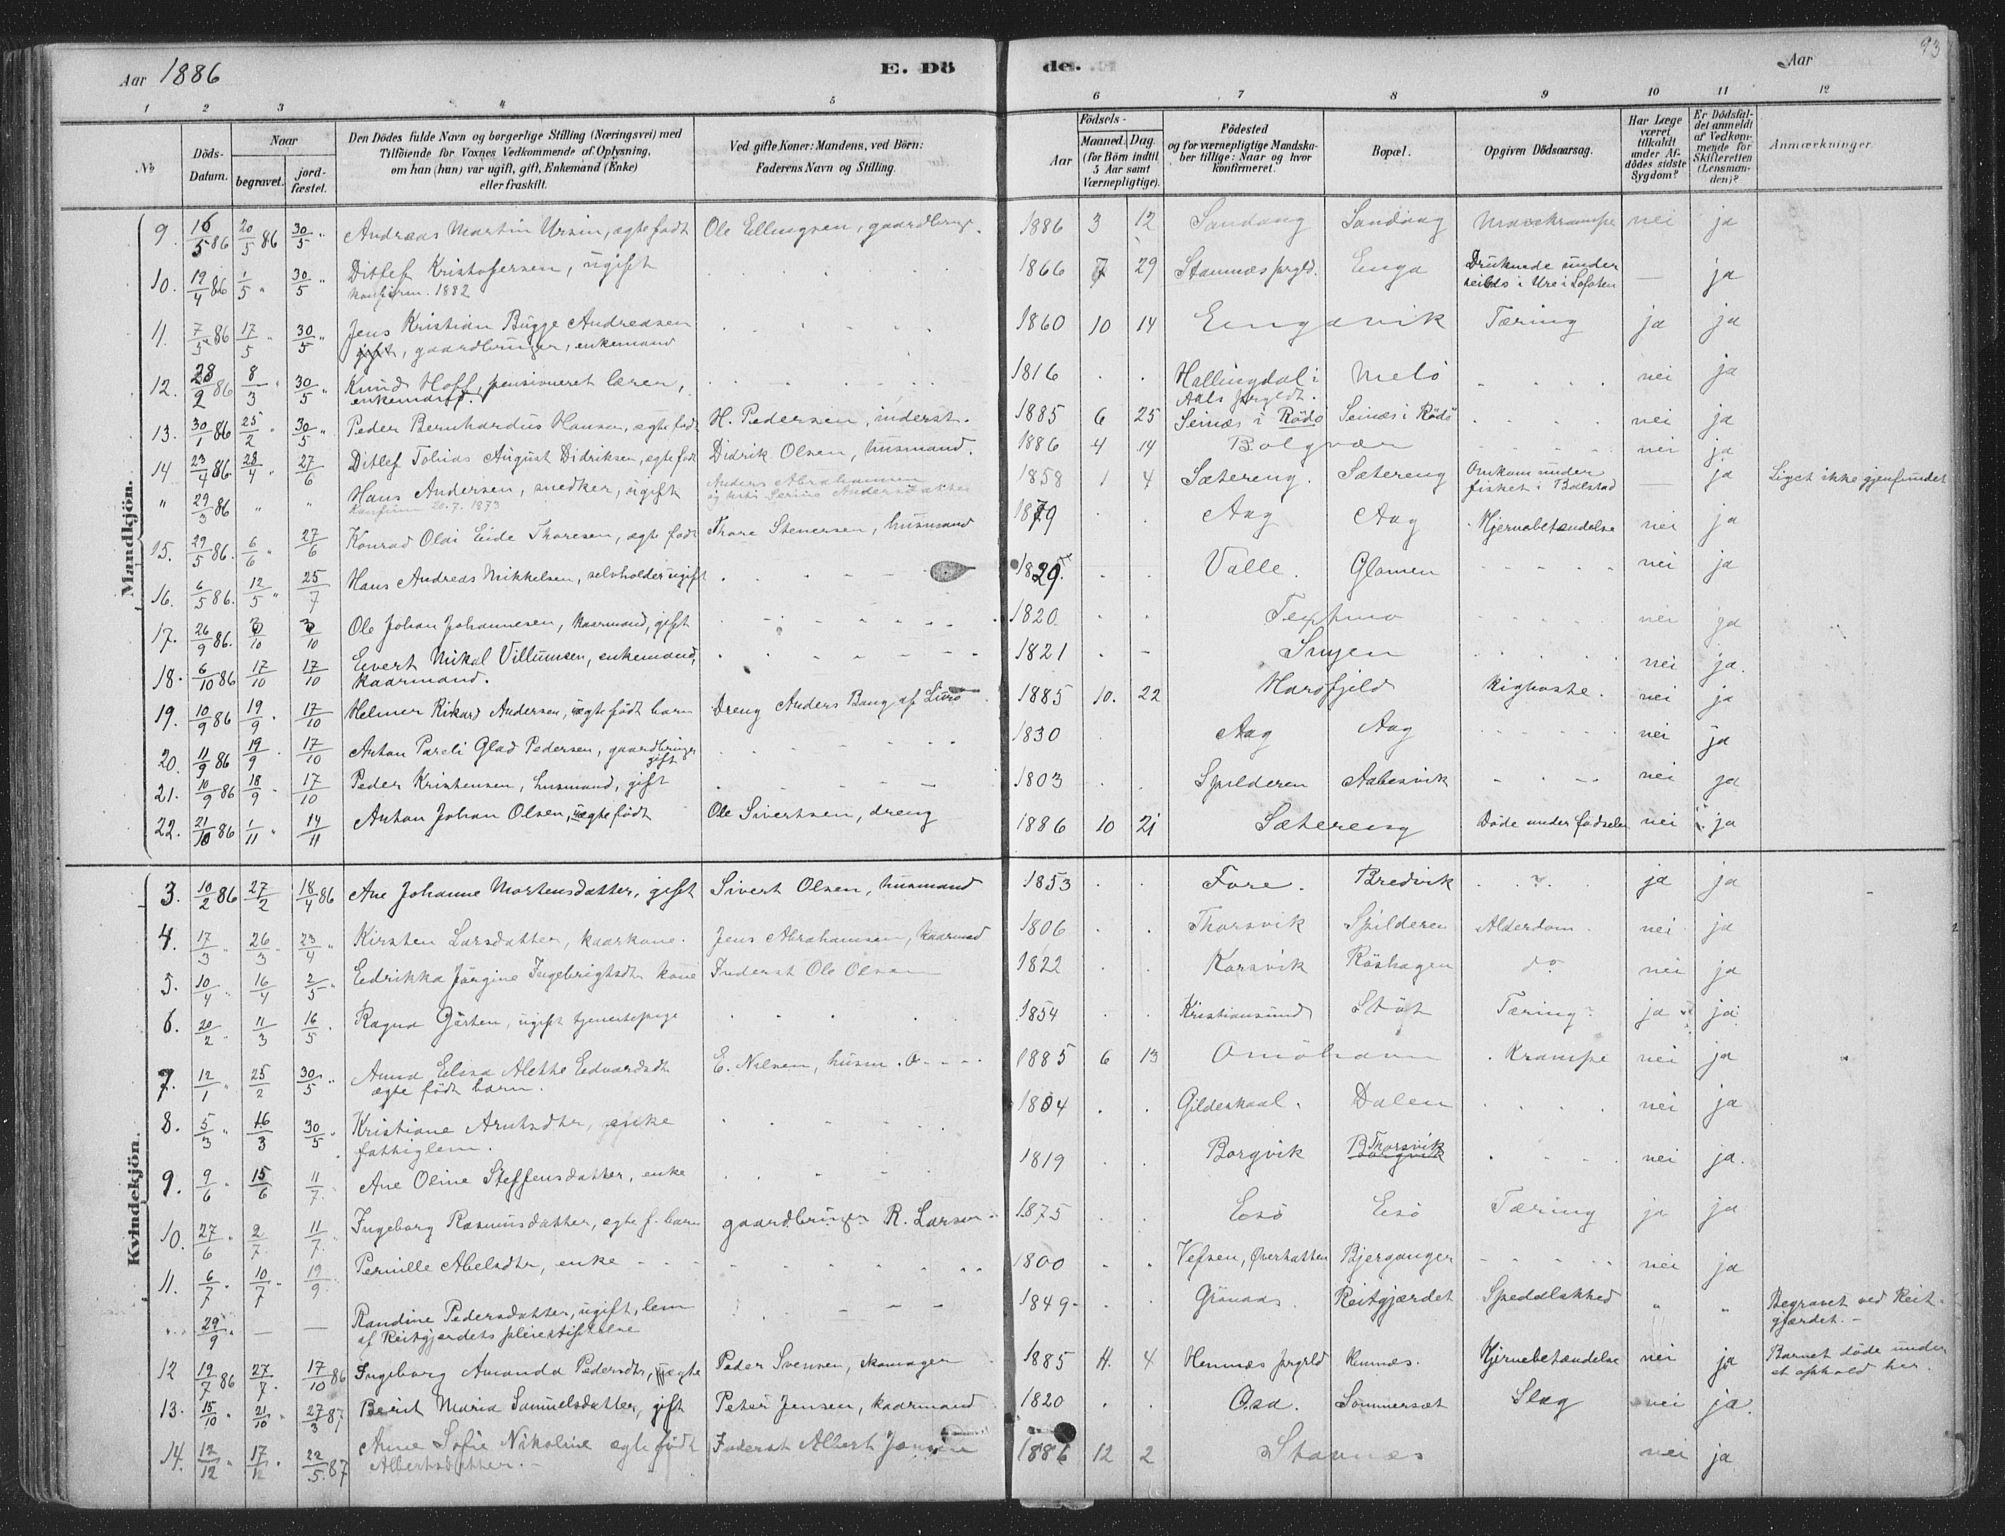 Aar 1886 E. Dö de. Aar 93
1 2 3 4 5 6 7 8 9 10 11 12
No
Döds-Datum.
Naar
begravet.
jord-fæstet.
Den Dödes fulde Navn og borgerlige Stilling (Næringsvei) med
Tilföiende for Voxnes Vedkommende af Oplysning,
om han (hun) var ugift, gift, Enkemand (Enke)
eller fraskilt.
Ved gifte Koner: Mandens, ved Börn:
Faderens Navn og Stilling.
Födsels-
Aar
Maaned. Dag.
(for Börn indtil
5 Aar samt
Værnepligtige).
Födested
og for værnepligtige Mandska-
ber tillige: Naar og hvor
konfirmeret.
Bopæl.
Opgiven Dödsaarsag.
Har Læge
været
tilkaldt
under Af-
dödes sidste
Sygdom?
Er Dödsfal-
det anmeldt
af Vedkom-
mende for
Skifteretten
(Lensman-
den)?
Anmærkninger.
Mandkjön.
9. 16/5 86 20/5 86 30/5 " Andreas Martin Ursin, ægte født Ole Ellingsen, gaardbruger. 1886 3 12 Sandvaag Sandvaag Mavekrampe nei ja
10. 19/4 86 1/5 " 30/5 " Ditlef Kristofersen, ugift 1866 7 29 Stamnæs prgld. Enga Druknede under — ja
konfirm. 1882 seilds i Ure i Lofoten
11. 7/5 86 17/5 " 30/5 " Jens Kristian Bugge Andreasen 1860 10 14 Engavik Tæring ja ja
gift, gaardbruger, enkemand
12. 28/2 86 8/3 " 30/5 " Knud Hoff, pensioneret lærer, 1816 Hallingdal i Melö nei ja
enkemand. Aals prgldt.
13. 30/1 86 25/2 " 30/5 " Peder Bernhardus Hansen, ægte født H. Pedersen, inderst. 1885 6 25 Seinæs i Rödö Seinæs i Rödö nei ja
14 23/4 86 28/4 " 27/6 Ditlef Tobias August Didriksen, ægte født Didrik Olsen, husmand. 1886 4 14 Bolgvær nei ja
" 29/3 86 " " Hans Andersen, snedker, ugift Anders Abrahamsen 1858 1 4 Sætereng. Sætereng Omkom under — ja Liget ikke gjenfundet
konfirm 20.7.1873 fisket i Balstad
15. 29/5 86. 6/6 " 27/6 Konrad Olai Eide Thoresen, ægte født Thore Stenersen, husmand 1879 Aag Aag Hjernebetændelse nei ja
16. 6/5 86. 12/5 " 25/7 Hans Andreas Mikkelsen, selvholder ugift 1829. Valle. Glomen nei ja
17. 26/9 86. 3/10 3/10 Ole Johan Johannesen, kaarmand, gift 1820. nei ja
18. 6/10 86 17/10 17/10 Eivert Nikal Villumsen, enkemand, 1821 nei ja.
kaarmand.
19. 10/9 86 19/9 17/10 Helmer Rikard Andersen, uægte født barn Dreng Anders Bang af Lurö 1885 10. 22 Hardfjeld Kighoste. nei ja
20. 11/9 86 19/9 17/10 Anton Pareli Glad Pedersen, gaardbruger 1830 Aag Aag nei ja
gift
21. 10/9 86 18/9 17/10 Peder Kristensen, husmand, gift 1803 Spilderen Aabesvik nei ja
22. 21/10 86 1/11 " 14/11 Anton Johan Olsen, uægte født Ole Sivertsen, dreng 1886 10 21 Sætereng Döde under födselen nei ja
Kvindekjön.
3. 10/2 86 27/2 18/4 86 Ane Johanne Mortensdatter, gift Sivert Olsen, husmand 1853 Fore. Bredvik ?. ja ja
4. 17/3 " 26/3 " 23/4 " Kirsten Larsdatter, kaarkone. Jens Abrahamsen, kaarmad 1806 Thorsvik Spilderen Alderdom. nei ja
5. 10/4 " 16/4 2/5 " Edrikka Jörgine Ingebrigtsdtr kone Inderst Ole Olsen 1822 Korsvik Röshagen do nei ja
6. 20/2 11/3 16/5 Ragna Gørten, ugift tjenestepige 1854 Kristiansund Støt Tæring ja ja
7. 12/1 " 25/2 30/5 " Anna Elisa Alette Edvardsdtr E. Nilsen, husm. 1885 6 13 Omöhavn Krampe nei ja
ægte født barn.
8. 5/3 " 16/3 30/5 Kristiane Arntsdtr, enke 1804 Gildeskaal. Dalen nei ja
fattiglem.
9. 9/6 " 15/6 11/7 Ane Oline Steffensdatter, enke 1819 Borgvik Thorsvik Borgvik nei ja.
10. 27/6 " 2/7. 11/7. Ingeborg Rasmusdatter, ægte f. barn gaardbruger R. Larsen 1875 Esö Esö Tæring ja ja
11. 6/7 " 10/7 " 19/9 Pernille Abelsdtr, enke 1800 Vefsen, Øverhatten Bjerganger nei ja
29/9 " — — Randine Pedersdatter, ugift, lem 1849 Grönaas. Reitgjærdet Spedalskhed " " Begravet ved Reit-
af Reitgjerdets pleiestiftelse gjærdet. —
12 19/7 86 27/7. 17/10 86 Ingeborg Amanda Pedersdtr, uægte Peder Svensen, skomager 1885 4. 4 Hemnæs prgld Hemnæs. Hjernebetændelse nei ja Barnet döde under
et ophold her.
13. 15/10 " 21/10 " 27/3 87 Berit Maria Samuelsdatter, gift Peter Jensen, kaarmand 1820 Osa. Sommerset Slag nei ja.
14. 12/12 " 17/12 22/5. 87 Anne Sofie Nikoline ægte født Inderst Albert Jensen 1886 12 2 Stavnæs nei ja
Albertsdatter. —